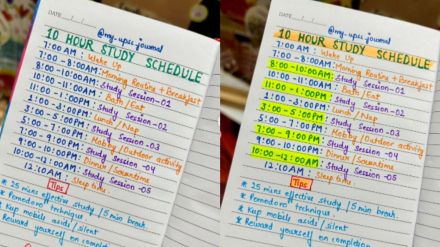 DATE
@my-upsc-journal
10 HOUR STUDY SCHEDULE
7:00 AM : Wake Up
7:00 - 8:00 AM : Morning Routine + Breakfast
8:00 - 10:00AM : Study Session -01
10:00 - 11:00AM : Bath / Eat
11:00 - 1:00PM : Study Session -02
1:00 - 3:00PM : Lunch / Nap
3:00 - 5:00PM : Study Session -03
5:00 - 7:00PM : Hobby / Outdoor activity
7:00 - 9:00PM : Study Session -04
9:00 - 10:00PM : Dinner / Screentime
10:00 - 12:00AM : Study Session -05
12AM : Sleep time
Tips
* 25 mins effective study / 5 min break
* Pomodoro technique
* Kup mobile aside / silent
* Reward yourself on completion
DATE
@my-upsc-journal
10 HOUR STUDY SCHEDULE
7:00 AM : Wake Up
7:00 - 8:00 AM : Morning Routine + Breakfast
8:00 - 10:00AM : Study Session -01
10:00 - 11:00AM : Bath / Eat
11:00 - 1:00PM : Study Session -02
1:00 - 3:00PM : Lunch / Nap
3:00 - 5:00PM : Study Session -03
5:00 - 7:00PM : Hobby / Outdoor activity
7:00 - 9:00PM : Study Session -04
9:00 - 10:00PM : Dinner / Screentime
10:00 - 12:00AM : Study Session -05
12AM : Sleep time
Tips
* 25 mins effective study / 5 min break
* Pomodoro technique
* Kup mobile aside / silent
* Reward yourself on completion